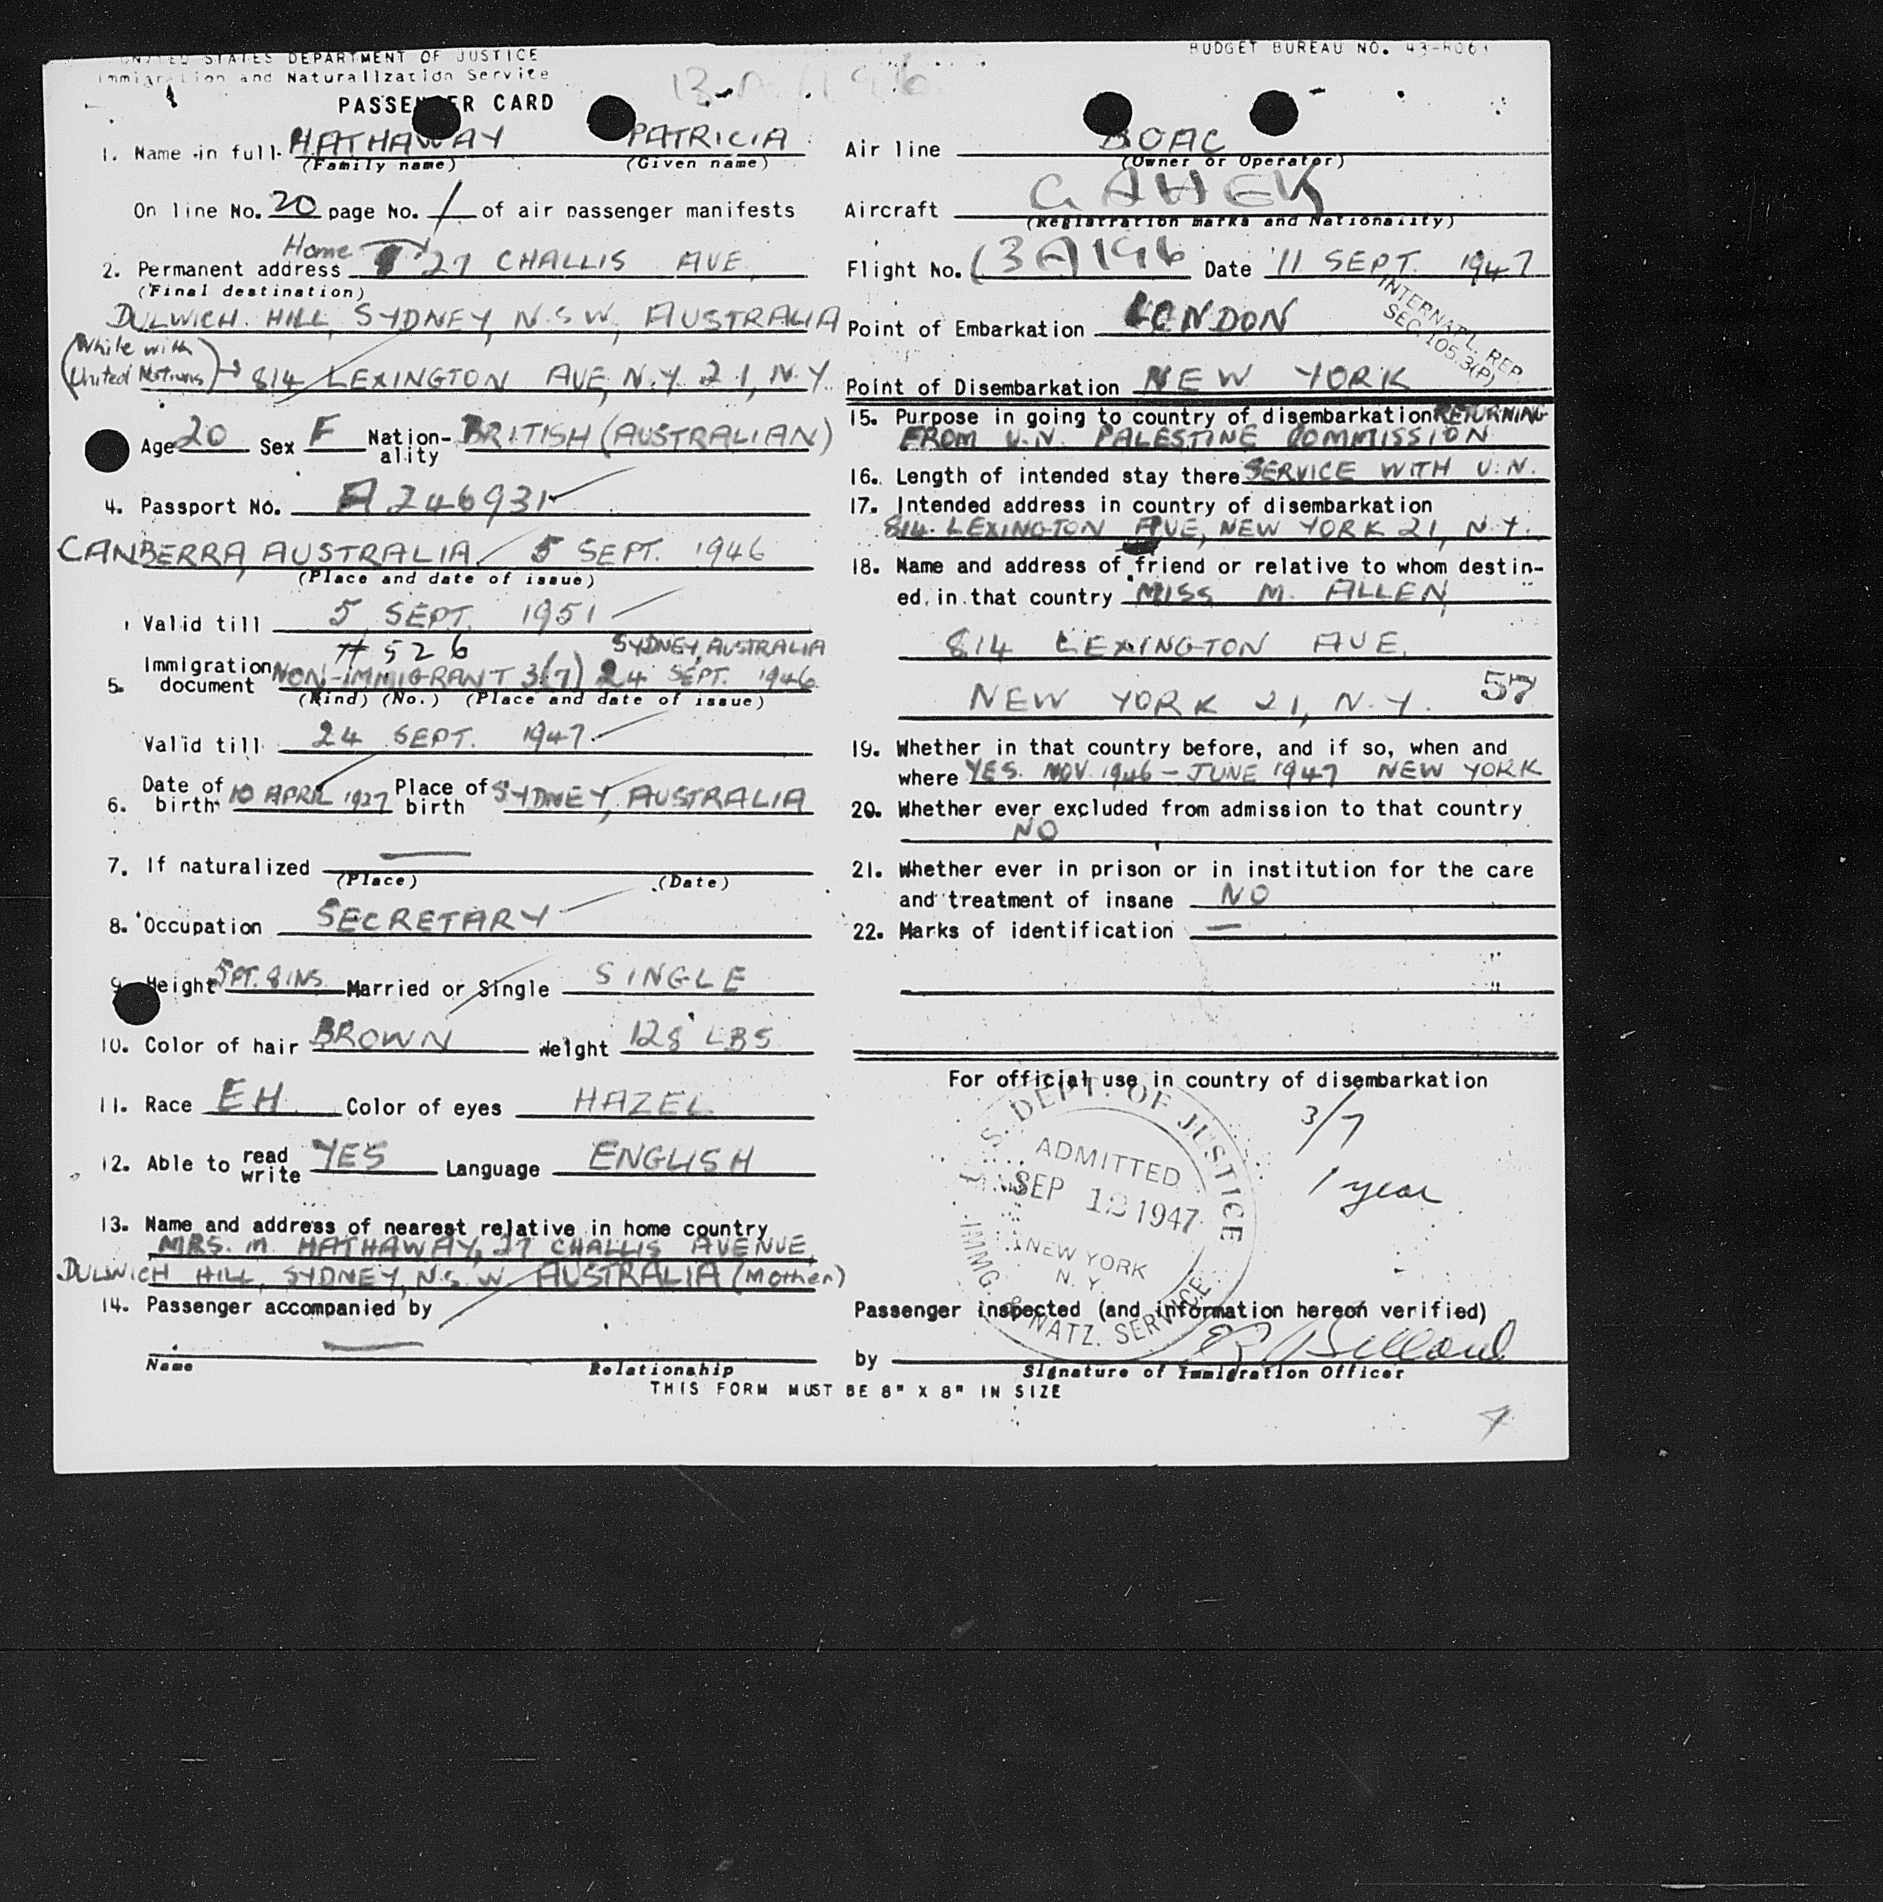 UNITED STATES DEPARTMENT OF JUSTICE
Immigration and Naturalization Service
PASSENGER CARD
1. Name in full HATHAWAY PATRICIA
(Family name) (Given name)
On line No. 20 page No. 1 of air passenger manifests
Home
2. Permanent address 27 CHALLIS AVE,
(Final destination)
DULWICH HILL, SYDNEY, N.S.W., AUSTRALIA
(While with United Nations) → 814 LEXINGTON AVE, N.Y. 21, N.Y.
Age 20 Sex F Nation-ality BRITISH (AUSTRALIAN)
4. Passport No. A 246931
CANBERRA, AUSTRALIA 5 SEPT. 1946
(Place and date of issue)
Valid till 5 SEPT. 1951
# 526 SYDNEY, AUSTRALIA
5. Immigration document NON-IMMIGRANT 3(7) 24 SEPT. 1946
(Kind) (No.) (Place and date of issue)
Valid till 24 SEPT. 1947
6. Date of birth 10 APRIL 1927 Place of birth SYDNEY, AUSTRALIA
7. If naturalized —
(Place) (Date)
8. Occupation SECRETARY
9. Height 5FT. 8INS Married or Single SINGLE
10. Color of hair BROWN Weight 128 LBS
11. Race EH Color of eyes HAZEL
12. Able to read write YES Language ENGLISH
13. Name and address of nearest relative in home country
MRS. M. HATHAWAY, 27 CHALLIS AVENUE,
DULWICH HILL, SYDNEY, N.S.W. AUSTRALIA (Mother)
14. Passenger accompanied by
—
Name Relationship
THIS FORM MUST BE 8" X 8" IN SIZE
BUDGET BUREAU NO. 43-R061
Air line BOAC
(Owner or Operator)
Aircraft G AHEK
(Registration marks and Nationality)
Flight No. (3A)196 Date 11 SEPT. 1947
INTERNATL. REP.
SEC. 105.3(P)
Point of Embarkation LONDON
Point of Disembarkation NEW YORK
15. Purpose in going to country of disembarkation RETURNING
FROM U.N. PALESTINE COMMISSION
16. Length of intended stay there SERVICE WITH U.N.
17. Intended address in country of disembarkation
814 LEXINGTON AVE, NEW YORK 21, N.Y.
18. Name and address of friend or relative to whom destin-
ed in that country MISS M. ALLEN,
814 LEXINGTON AVE.
NEW YORK 21, N.Y. 57
19. Whether in that country before, and if so, when and
where YES. NOV. 1946 – JUNE 1947 NEW YORK
20. Whether ever excluded from admission to that country
NO
21. Whether ever in prison or in institution for the care
and treatment of insane NO
22. Marks of identification —
For official use in country of disembarkation
3/7
1 year
U.S. DEPT. OF JUSTICE
ADMITTED
SEP 12 1947
NEW YORK
N. Y.
IMMG. & NATZ. SERVICE
Passenger inspected (and information hereon verified)
by
Signature of Immigration Officer